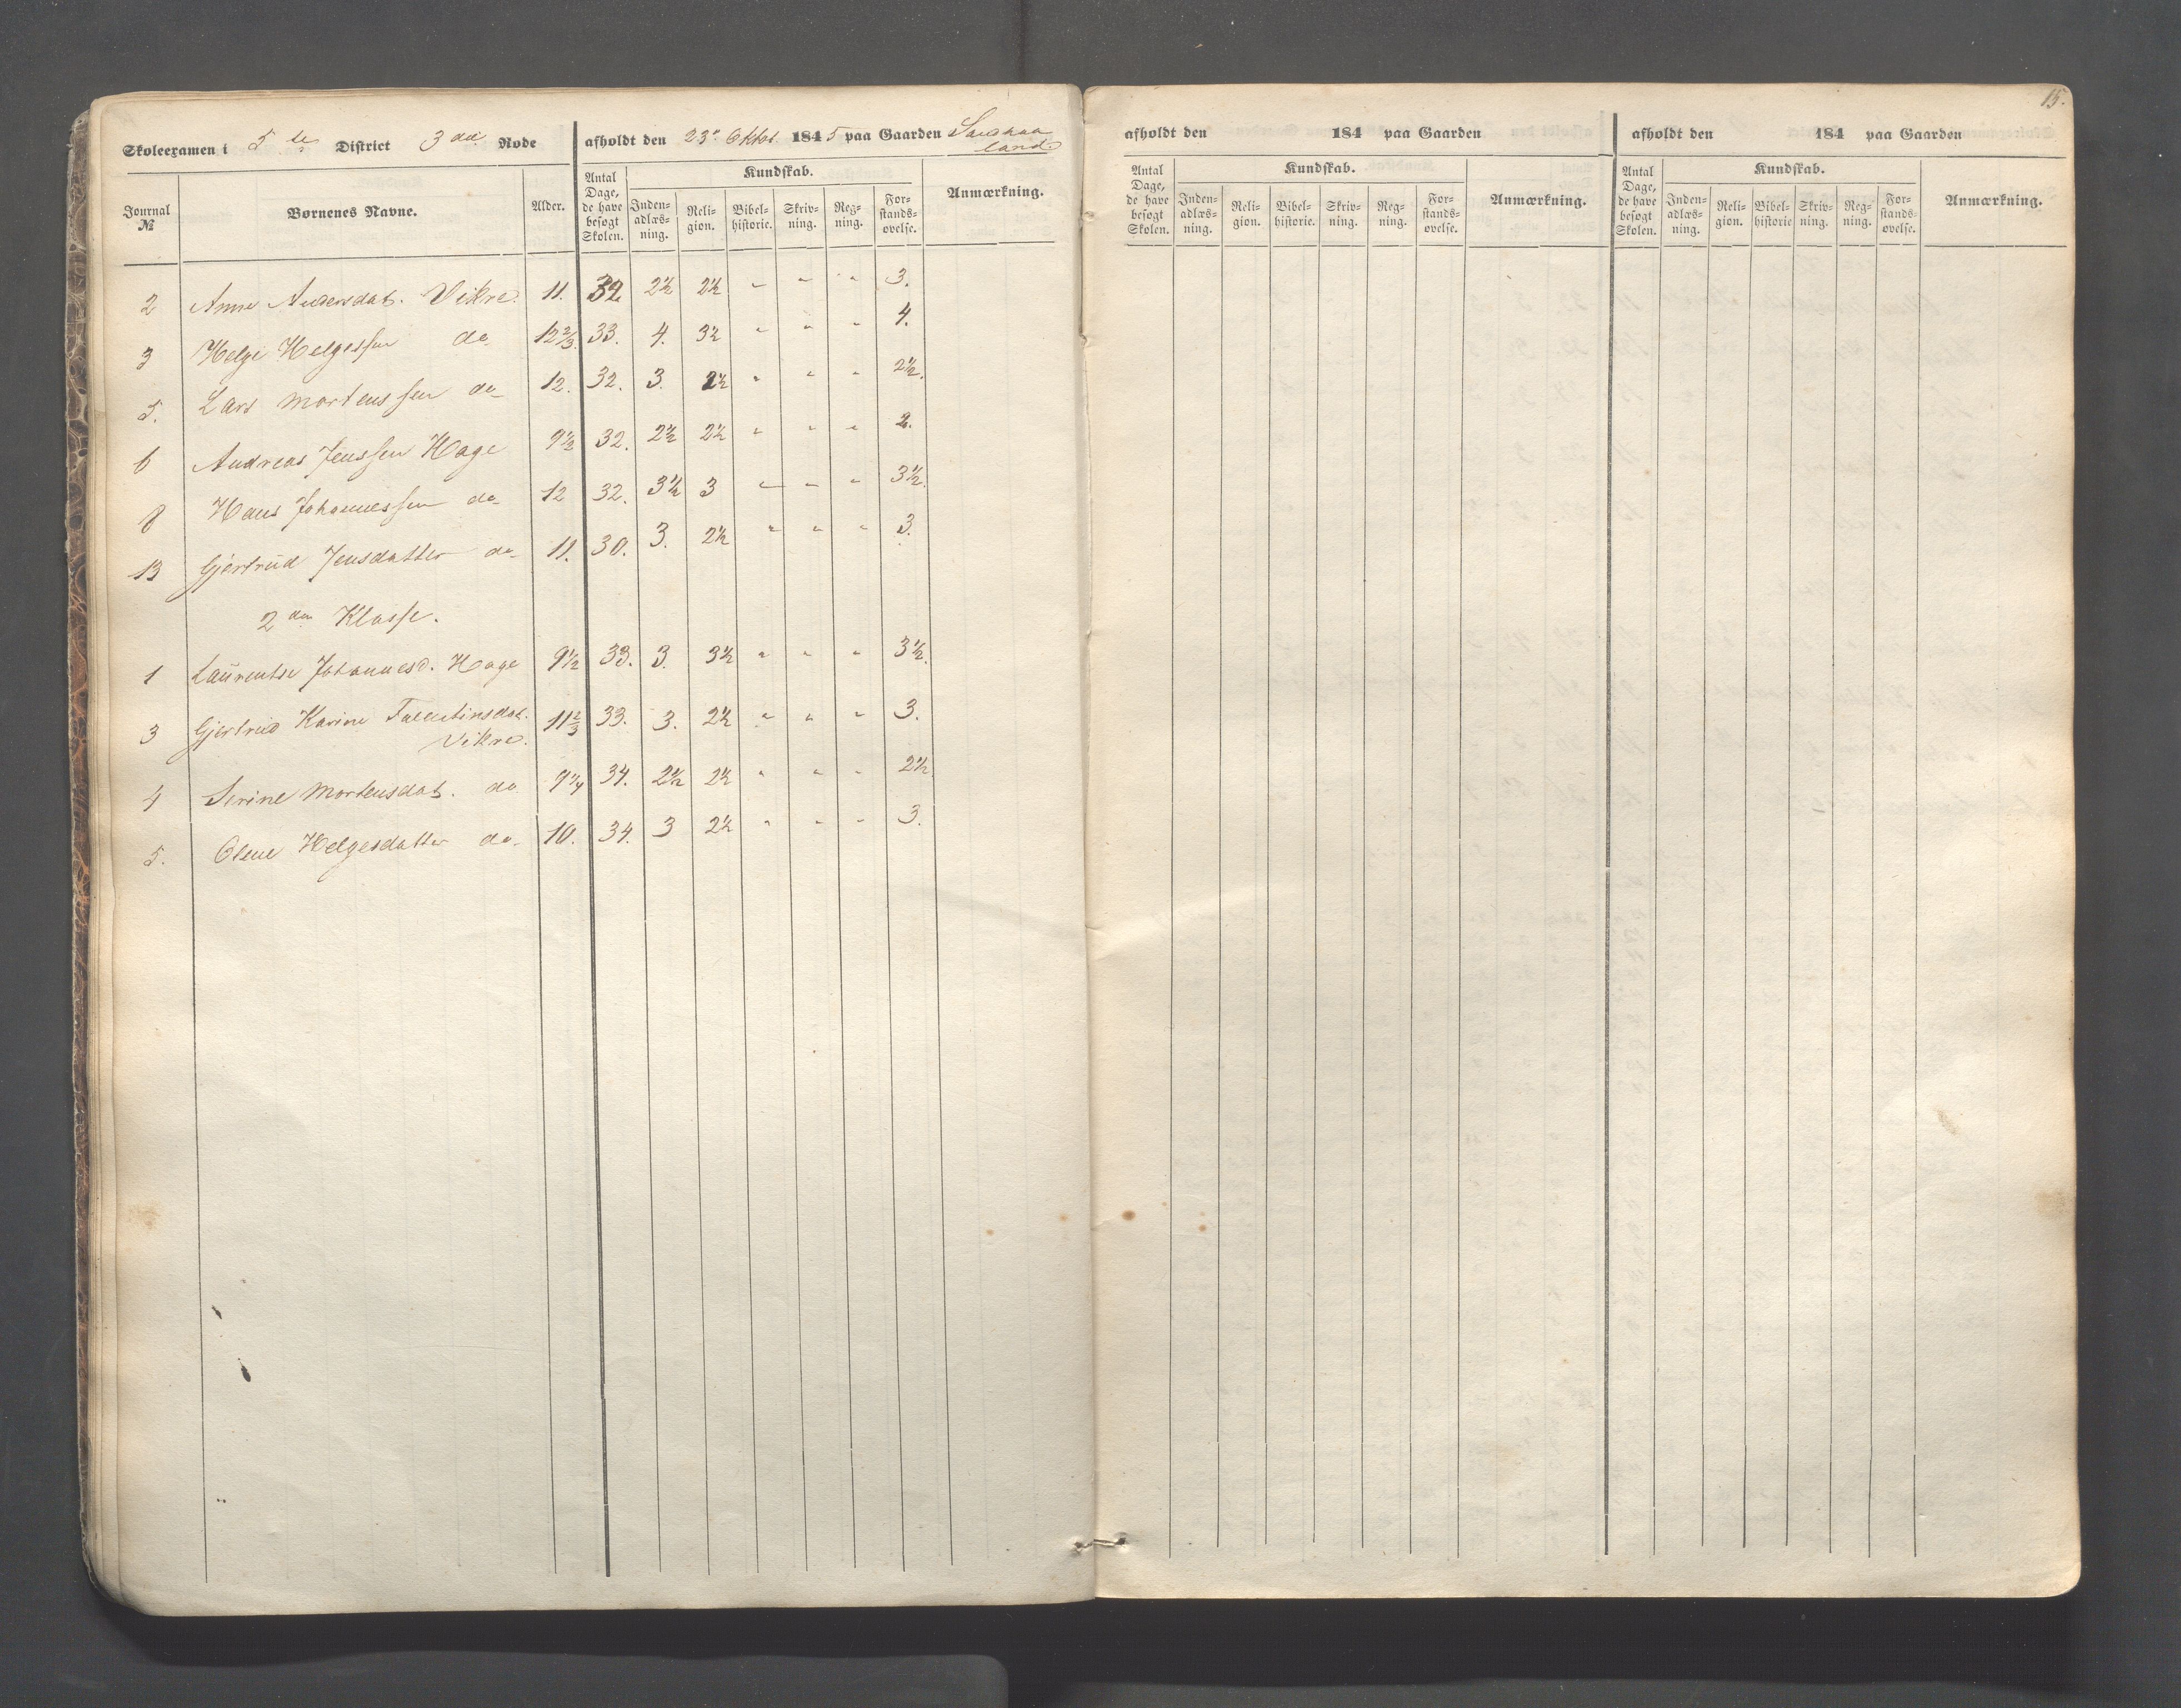 15.
Skoleexamen i 5te District 3die Rode afholdt den 23de Oktbr. 1845 paa Gaarden
land
Journal № Børnenes Navne. Alder. Antal Dage, de have besøgt Skolen. Kundskab. Anmærkning.
Inden-adlæs-ning. Reli-gion. Bibel-historie. Skriv-ning. Reg-ning. For-stands-øvelse.
2 Anne Andersdat. Vikre. 11. 32. 2½ 2½ " " " 3.
3 Helge Helgessen do. 12⅔. 33. 4. 3½ " " " 4.
5. Lars Mortenssen do. 12. 32. 3. 2½ " " " 2½.
6 Andreas Jenssen Hage 9½ 32. 2½ 2½ " " " 2.
8 Hans Johannessen do. 12 32. 3½ 3 " " " 3½.
13 Gjertrud Jensdatter do. 11. 30. 3. 2½ " " " 3.
2den Klasse.
1 Laurentse Johannesd. Hage 9½ 33. 3. 3½ " " " 3½.
3 Gjertrud Karine 11⅔ 33. 3. 2½ " " " 3.
Vikre.
4 Serine Mortensdat. do. 9¼ 34. 2½ 2½ " " " 2½
5. Olene Helgesdatter do. 10. 34. 3 2½ " " " 3.
afholdt den 184 paa Gaarden
Antal Dage, de have besøgt Skolen. Kundskab. Anmærkning.
Inden-adlæs-ning. Reli-gion. Bibel-historie. Skriv-ning. Reg-ning. For-stands-øvelse.
afholdt den 184 paa Gaarden
Antal Dage, de have besøgt Skolen. Kundskab. Anmærkning.
Inden-adlæs-ning. Reli-gion. Bibel-historie Skriv-ning. Reg-ning. For-stands-øvelse.